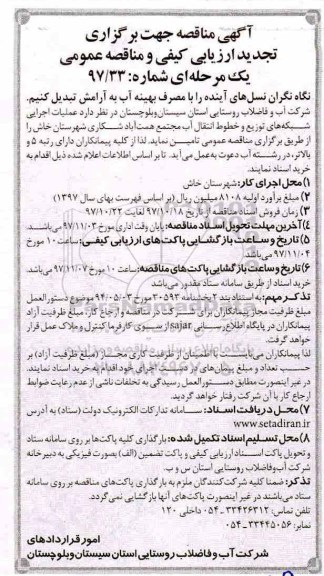 آگهی مناقصه جهت برگزاری
تجدید ارزیابی کیفی و مناقصه عمومی
یک مرحله‌ای شماره: ۹۷/۳۳
نگاه نگران نسل‌های آینده را با مصرف بهینه آب به آرامش تبدیل کنیم.
شرکت آب و فاضلاب روستایی استان سیستان‌وبلوچستان در نظر دارد عملیات اجرایی
شبکه‌های توزیع و خطوط انتقال آب مجتمع همت‌آباد شکاری شهرستان خاش را
از طریق برگزاری مناقصه عمومی تامین نماید. لذا از کلیه پیمانکاران دارای رتبه ۵ و
بالاتر، در رشته آب دعوت به‌عمل می‌آید. تا بر اساس اطلاعات اعلام شده ذیل اقدام به
خرید اسناد نمایند.
۱) محل اجرای کار: شهرستان خاش
۲) مبلغ برآورد اولیه ۸۱۰۸ میلیون ریال (بر اساس فهرست بهای سال ۱۳۹۷)
۳) زمان فروش اسناد مناقصه: از تاریخ ۹۷/۱۰/۱۸ لغایت ۹۷/۱۰/۲۲
۴) آخرین مهلت تحویل اسناد مناقصه: پایان وقت اداری مورخ ۹۷/۱۱/۰۳ می‌باشد.
۵) تاریخ و ساعت بازگشایی پاکت‌های ارزیابی کیفی: ساعت ۱۰ مورخ
۹۷/۱۱/۰۴ می‌باشد.
۶) تاریخ و ساعت بازگشایی پاکت‌های مناقصه: ساعت ۱۰ مورخ ۹۷/۱۱/۰۷ می‌باشد
خرید اسناد از طریق سامانه ستاد مقدور می‌باشد
تذکر مهم: به استناد بند ۲ بخشنامه ۳۰۵۹۳ مورخ ۹۴/۰۵/۰۳ موضوع دستورالعمل
مبلغ ظرفیت مجاز پیمانکاران برای شرکت در مناقصه و ارجاع کار، مبلغ ظرفیت آزاد
پیمانکاران در پایگاه اطلاع رسانی sajar از سوی کارفرما کنترل و ملاک عمل قرار
خواهد گرفت.
لذا پیمانکاران می‌بایست با اطمینان از ظرفیت کاری مجاز (مبلغ ظرفیت آزاد) بر
حسب تعداد و مبلغ پیمان‌های در دست اجرای خود اقدام به خرید اسناد نمایند.
در غیر اینصورت مطابق دستورالعمل رسیدگی به تخلفات ناشی از عدم رعایت ضوابط
ارجاع کار با آن شرکت رفتار خواهد گردید.
۷) محل دریافت اسناد: سامانه تدارکات الکترونیک دولت (ستاد) به آدرس
www.setadiran.ir
۸) محل تسلیم اسناد تکمیل شده: بارگذاری کلیه پاکت‌ها بر روی سامانه ستاد
و تحویل پاکت اسناد ارزیابی کیفی و پاکت تضمین (الف) بصورت فیزیکی به دبیرخانه
شرکت آب‌وفاضلاب روستایی استان س و ب.
تذکر: ضمنا کلیه شرکت‌کنندگان ملزم به بارگذاری پاکت‌های مناقصه بر روی سامانه
ستاد می‌باشند در غیر اینصورت پاکت‌های آنها بازگشایی نمی‌گردد.
تلفن تماس: ۳۳۴۲۶۳۱۲ـ۰۵۴ داخلی ۱۲۰
نمابر: ۳۳۴۴۵۰۵۶ـ۰۵۴
امور قراردادهای
شرکت آب و فاضلاب روستایی استان سیستان‌وبلوچستان